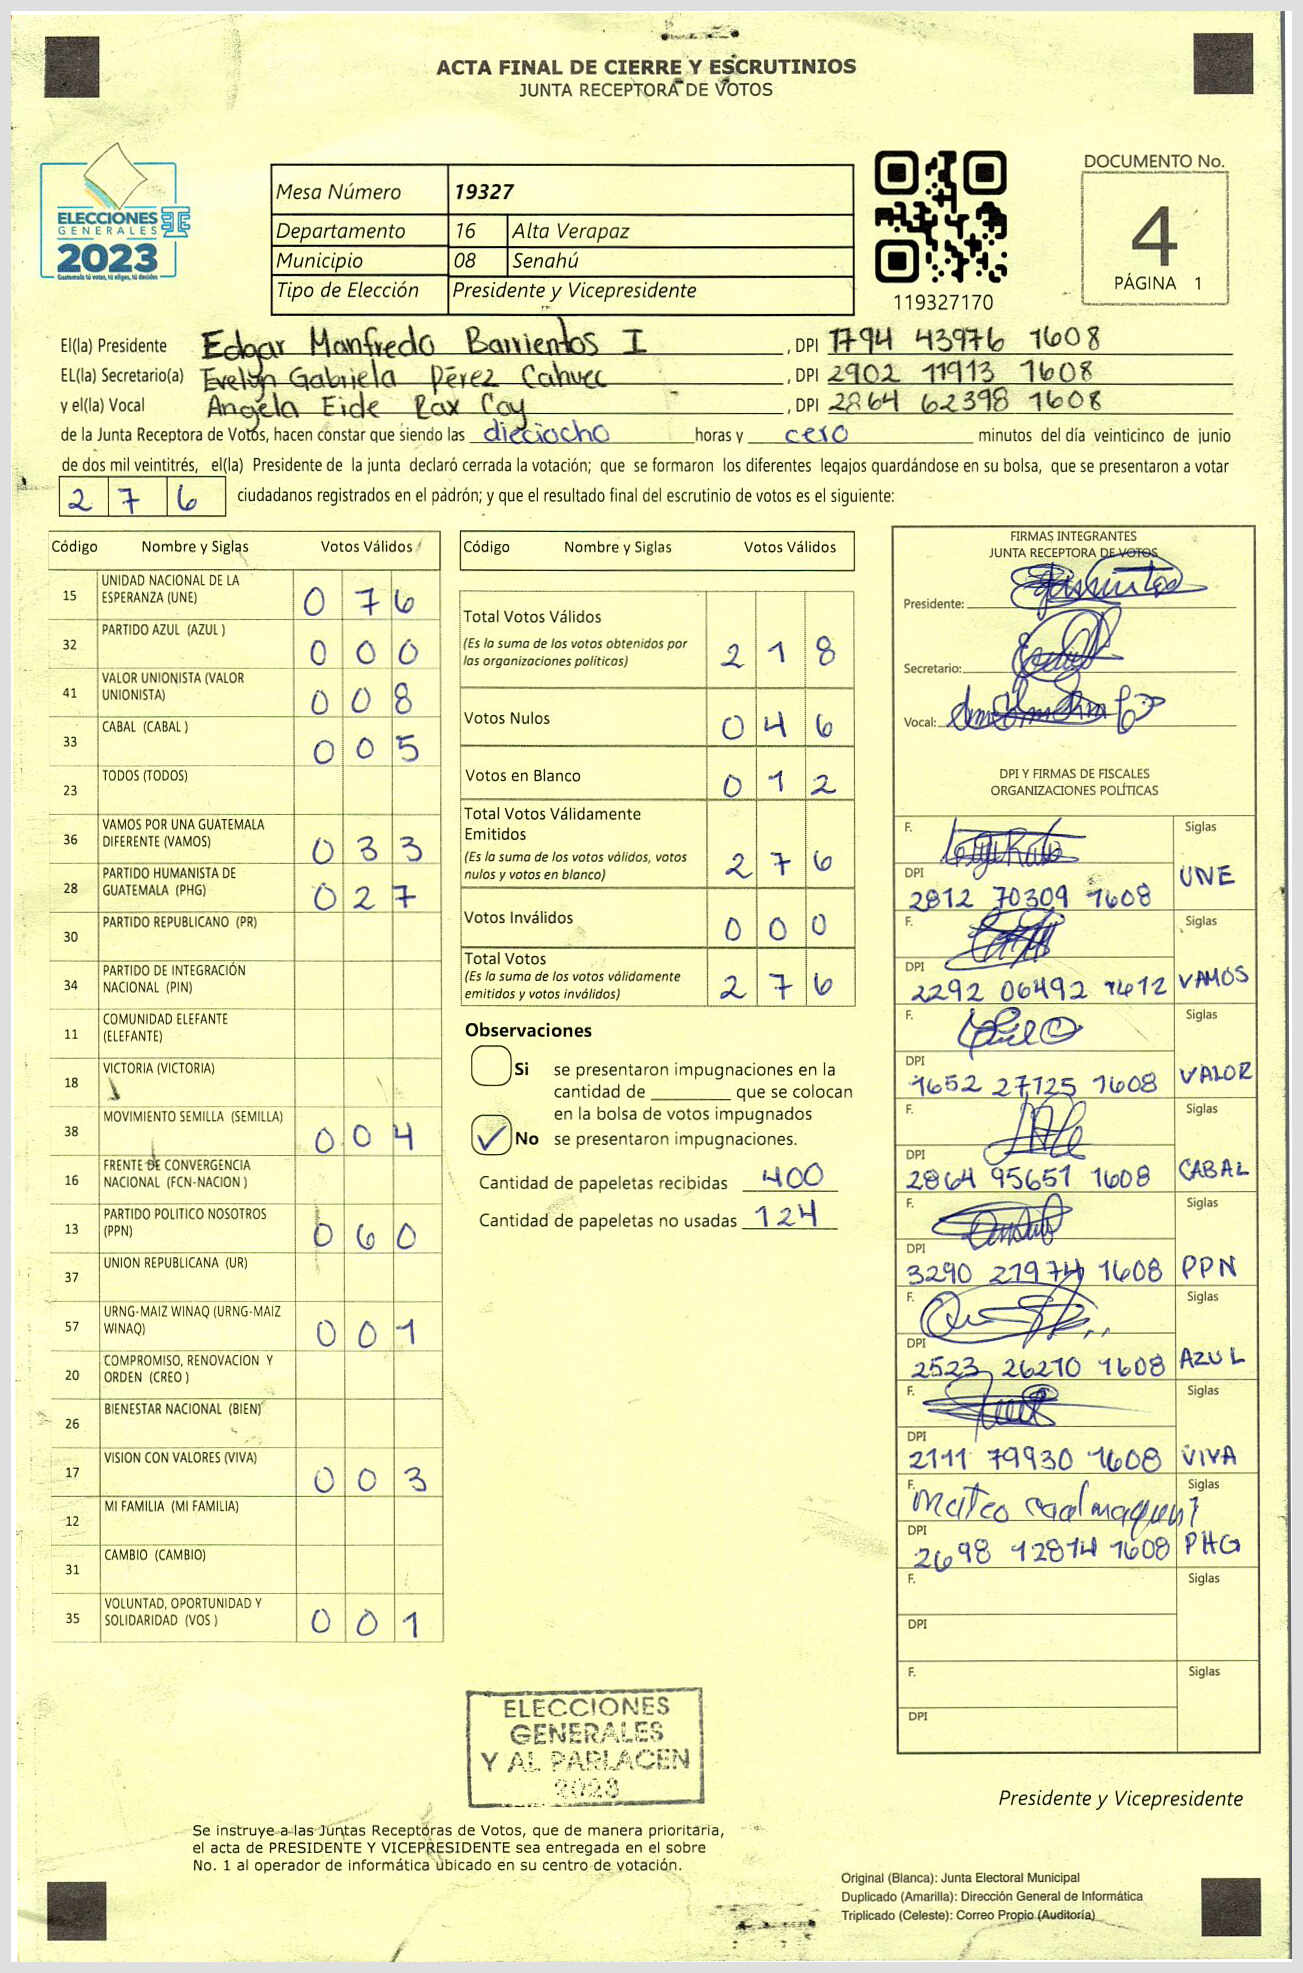 ACTA FINAL DE CIERRE Y ESCRUTINIOS
JUNTA RECEPTORA DE VOTOS
ELECCIONES
GENERALES
2023
Guatemala tú votas, tú eliges, tú decides
Mesa Número 19327
Departamento 16 Alta Verapaz
Municipio 08 Senahú
Tipo de Elección Presidente y Vicepresidente
119327170
DOCUMENTO No.
4
PÁGINA 1
El(la) Presidente Edgar Manfredo Barrientos I, DPI 1794 43976 1608
EL(la) Secretario(a) Evelyn Gabriela Pérez Cahuec, DPI 2902 11913 1608
y el(la) Vocal Angela Eide Rax Coy, DPI 2864 62398 1608
de la Junta Receptora de Votos, hacen constar que siendo las dieciocho horas y cero minutos del día veinticinco de junio
de dos mil veintitrés, el(la) Presidente de la junta declaró cerrada la votación; que se formaron los diferentes legajos guardándose en su bolsa, que se presentaron a votar
276 ciudadanos registrados en el padrón; y que el resultado final del escrutinio de votos es el siguiente:
Código Nombre y Siglas Votos Válidos
15 UNIDAD NACIONAL DE LA
ESPERANZA (UNE) 076
32 PARTIDO AZUL (AZUL ) 000
41 VALOR UNIONISTA (VALOR
UNIONISTA) 008
33 CABAL (CABAL ) 005
23 TODOS (TODOS)
36 VAMOS POR UNA GUATEMALA
DIFERENTE (VAMOS) 033
28 PARTIDO HUMANISTA DE
GUATEMALA (PHG) 027
30 PARTIDO REPUBLICANO (PR)
34 PARTIDO DE INTEGRACIÓN
NACIONAL (PIN)
11 COMUNIDAD ELEFANTE
(ELEFANTE)
18 VICTORIA (VICTORIA)
38 MOVIMIENTO SEMILLA (SEMILLA) 004
16 FRENTE DE CONVERGENCIA
NACIONAL (FCN-NACION )
13 PARTIDO POLITICO NOSOTROS
(PPN) 060
37 UNION REPUBLICANA (UR)
57 URNG-MAIZ WINAQ (URNG-MAIZ
WINAQ) 001
20 COMPROMISO, RENOVACION Y
ORDEN (CREO )
26 BIENESTAR NACIONAL (BIEN)
17 VISION CON VALORES (VIVA) 003
12 MI FAMILIA (MI FAMILIA)
31 CAMBIO (CAMBIO)
35 VOLUNTAD, OPORTUNIDAD Y
SOLIDARIDAD (VOS ) 001
Código Nombre y Siglas Votos Válidos
Total Votos Válidos
(Es la suma de los votos obtenidos por
las organizaciones políticas) 218
Votos Nulos 046
Votos en Blanco 012
Total Votos Válidamente
Emitidos
(Es la suma de los votos válidos, votos
nulos y votos en blanco) 276
Votos Inválidos 000
Total Votos
(Es la suma de los votos válidamente
emitidos y votos inválidos) 276
Observaciones
Si se presentaron impugnaciones en la
cantidad de ________ que se colocan
en la bolsa de votos impugnados
No se presentaron impugnaciones.
Cantidad de papeletas recibidas 400
Cantidad de papeletas no usadas 124
FIRMAS INTEGRANTES
JUNTA RECEPTORA DE VOTOS
Presidente:
Secretario:
Vocal:
DPI Y FIRMAS DE FISCALES
ORGANIZACIONES POLÍTICAS
F. Siglas
DPI 2812 70309 1608 UNE
F. Siglas
DPI 2292 06492 1612 VAMOS
F. Siglas
DPI 1652 27125 1608 VALOR
F. Siglas
DPI 2864 95651 1608 CABAL
F. Siglas
DPI 3290 21974 1608 PPN
F. Siglas
DPI 2523 26210 1608 AZUL
F. Siglas
DPI 2111 79930 1608 VIVA
F. Mateo Siglas
DPI 2698 12814 1608 PHG
F. Siglas
DPI
F. Siglas
DPI
ELECCIONES
GENERALES
Y AL PARLACEN
2023
Presidente y Vicepresidente
Se instruye a las Juntas Receptoras de Votos, que de manera prioritaria,
el acta de PRESIDENTE Y VICEPRESIDENTE sea entregada en el sobre
No. 1 al operador de informática ubicado en su centro de votación.
Original (Blanca): Junta Electoral Municipal
Duplicado (Amarilla): Dirección General de Informática
Triplicado (Celeste): Correo Propio (Auditoría)